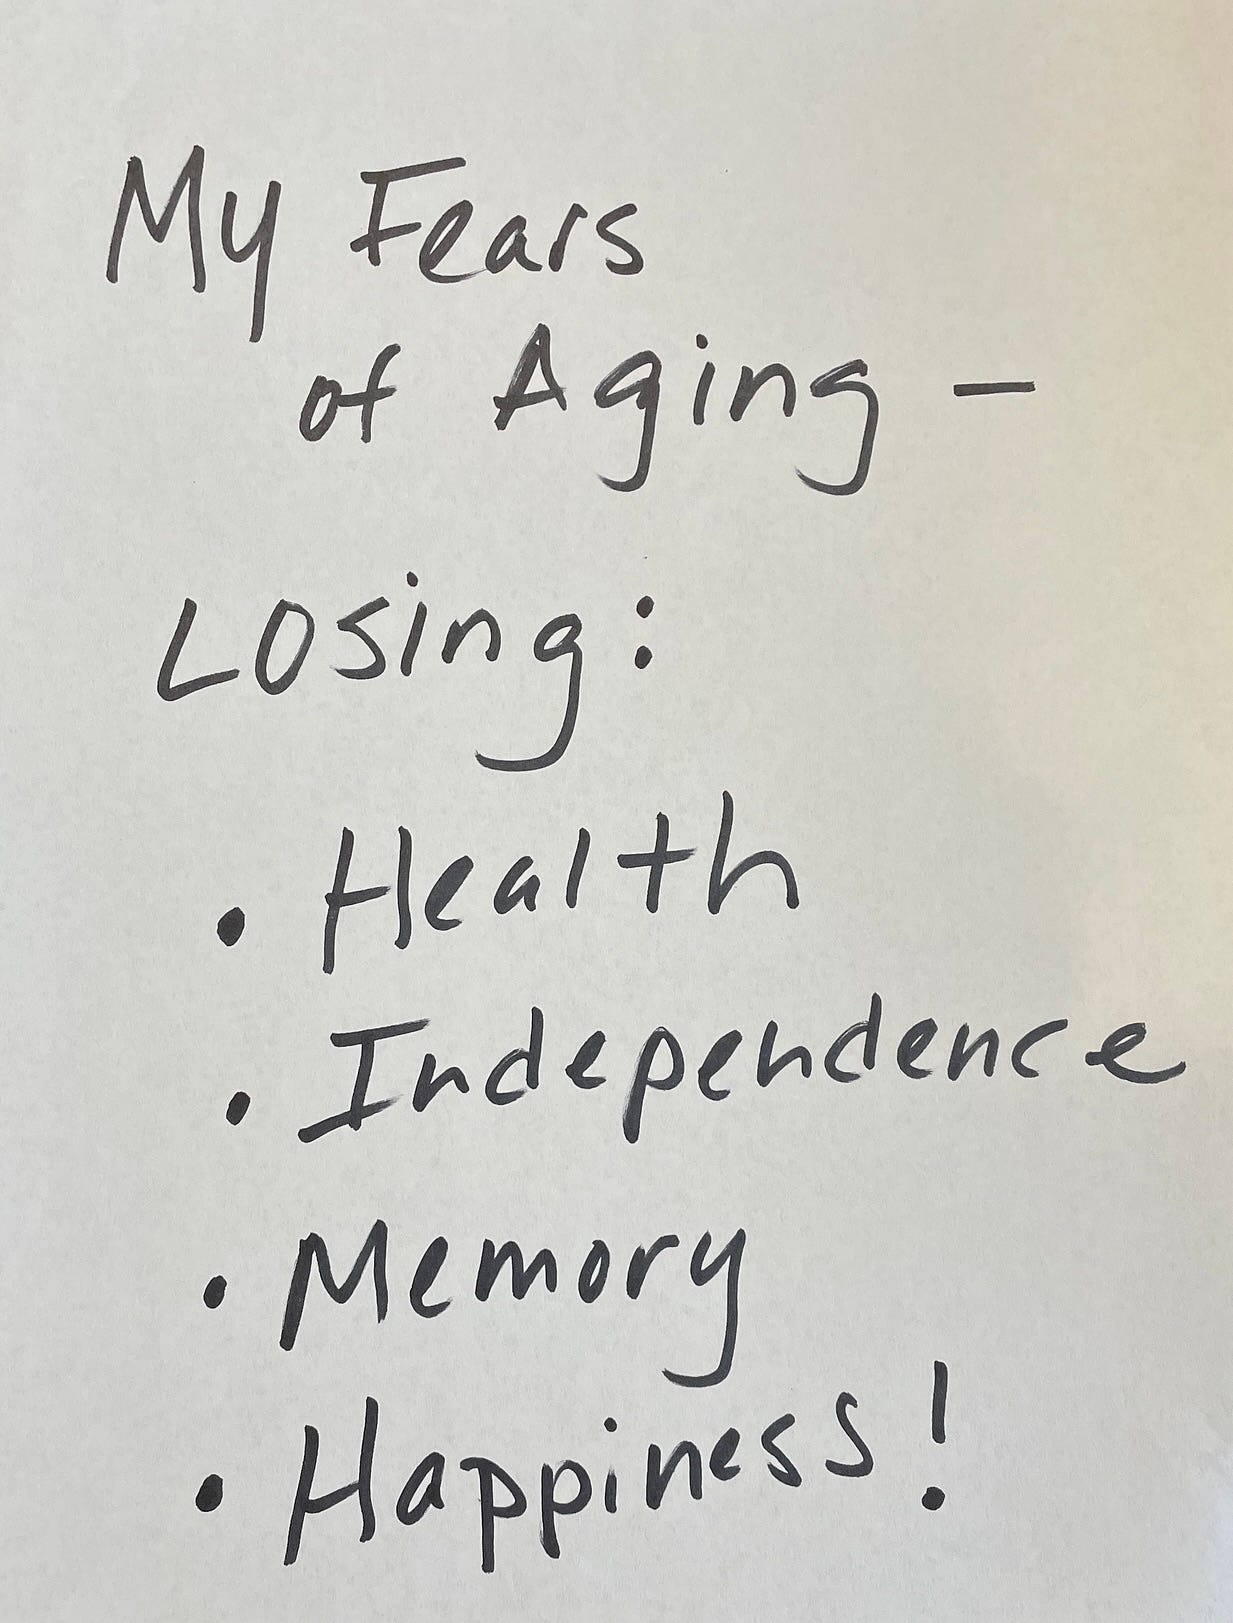 My Fears
of Aging –
Losing:
• Health
• Independence
• Memory
• Happiness!